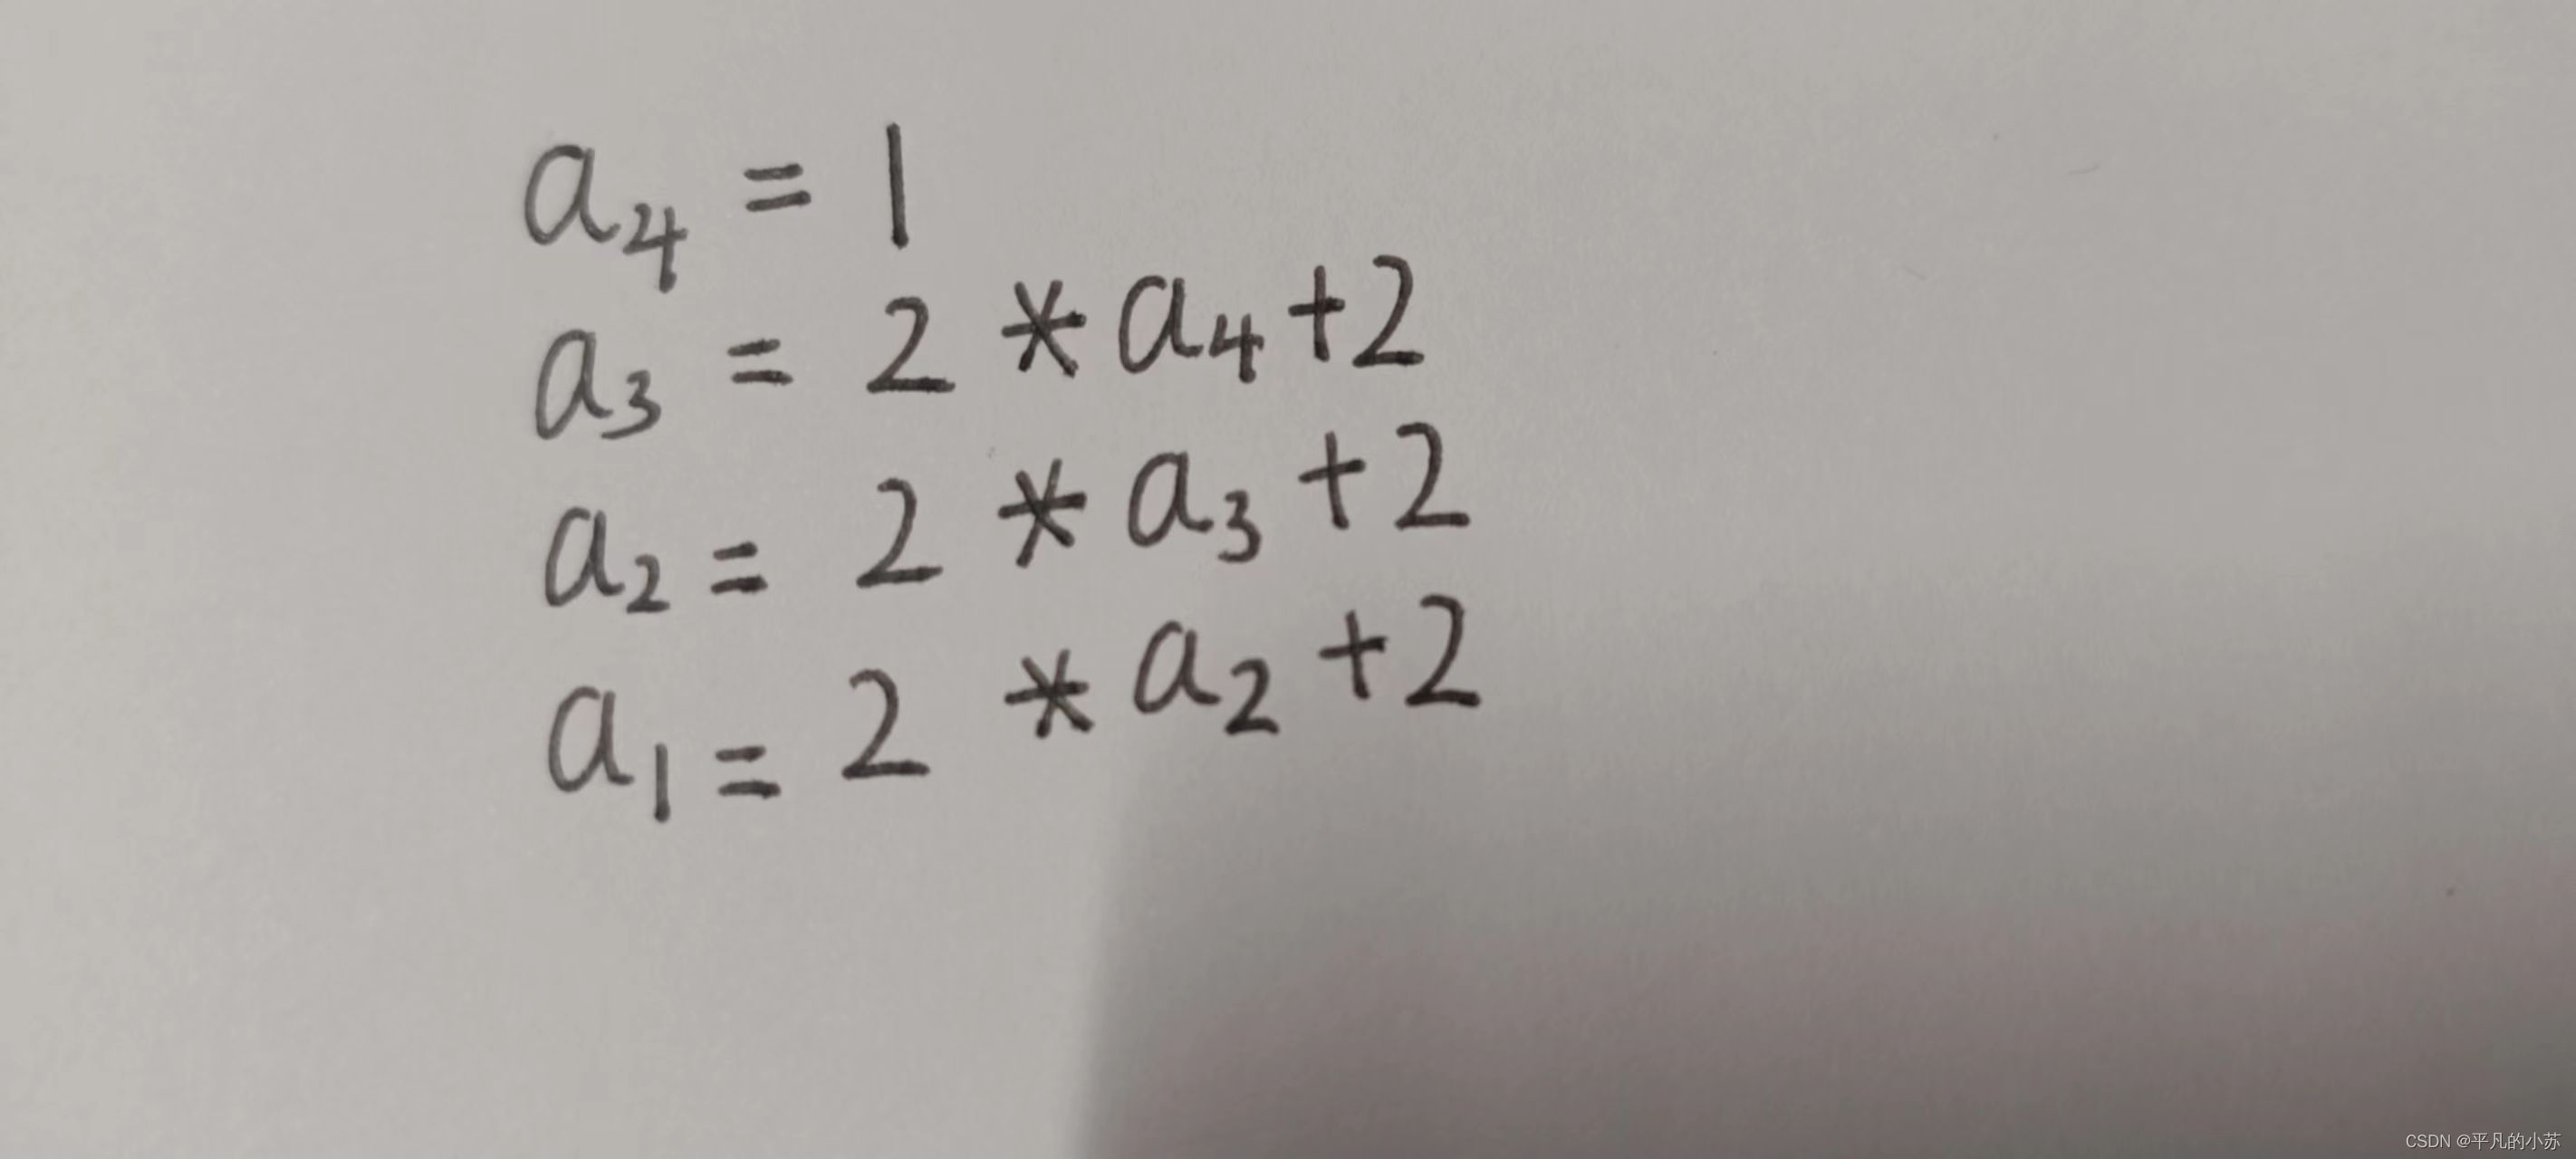 a₄ = 1
a₃ = 2 * a₄ + 2
a₂ = 2 * a₃ + 2
a₁ = 2 * a₂ + 2
CSDN @平凡的小苏